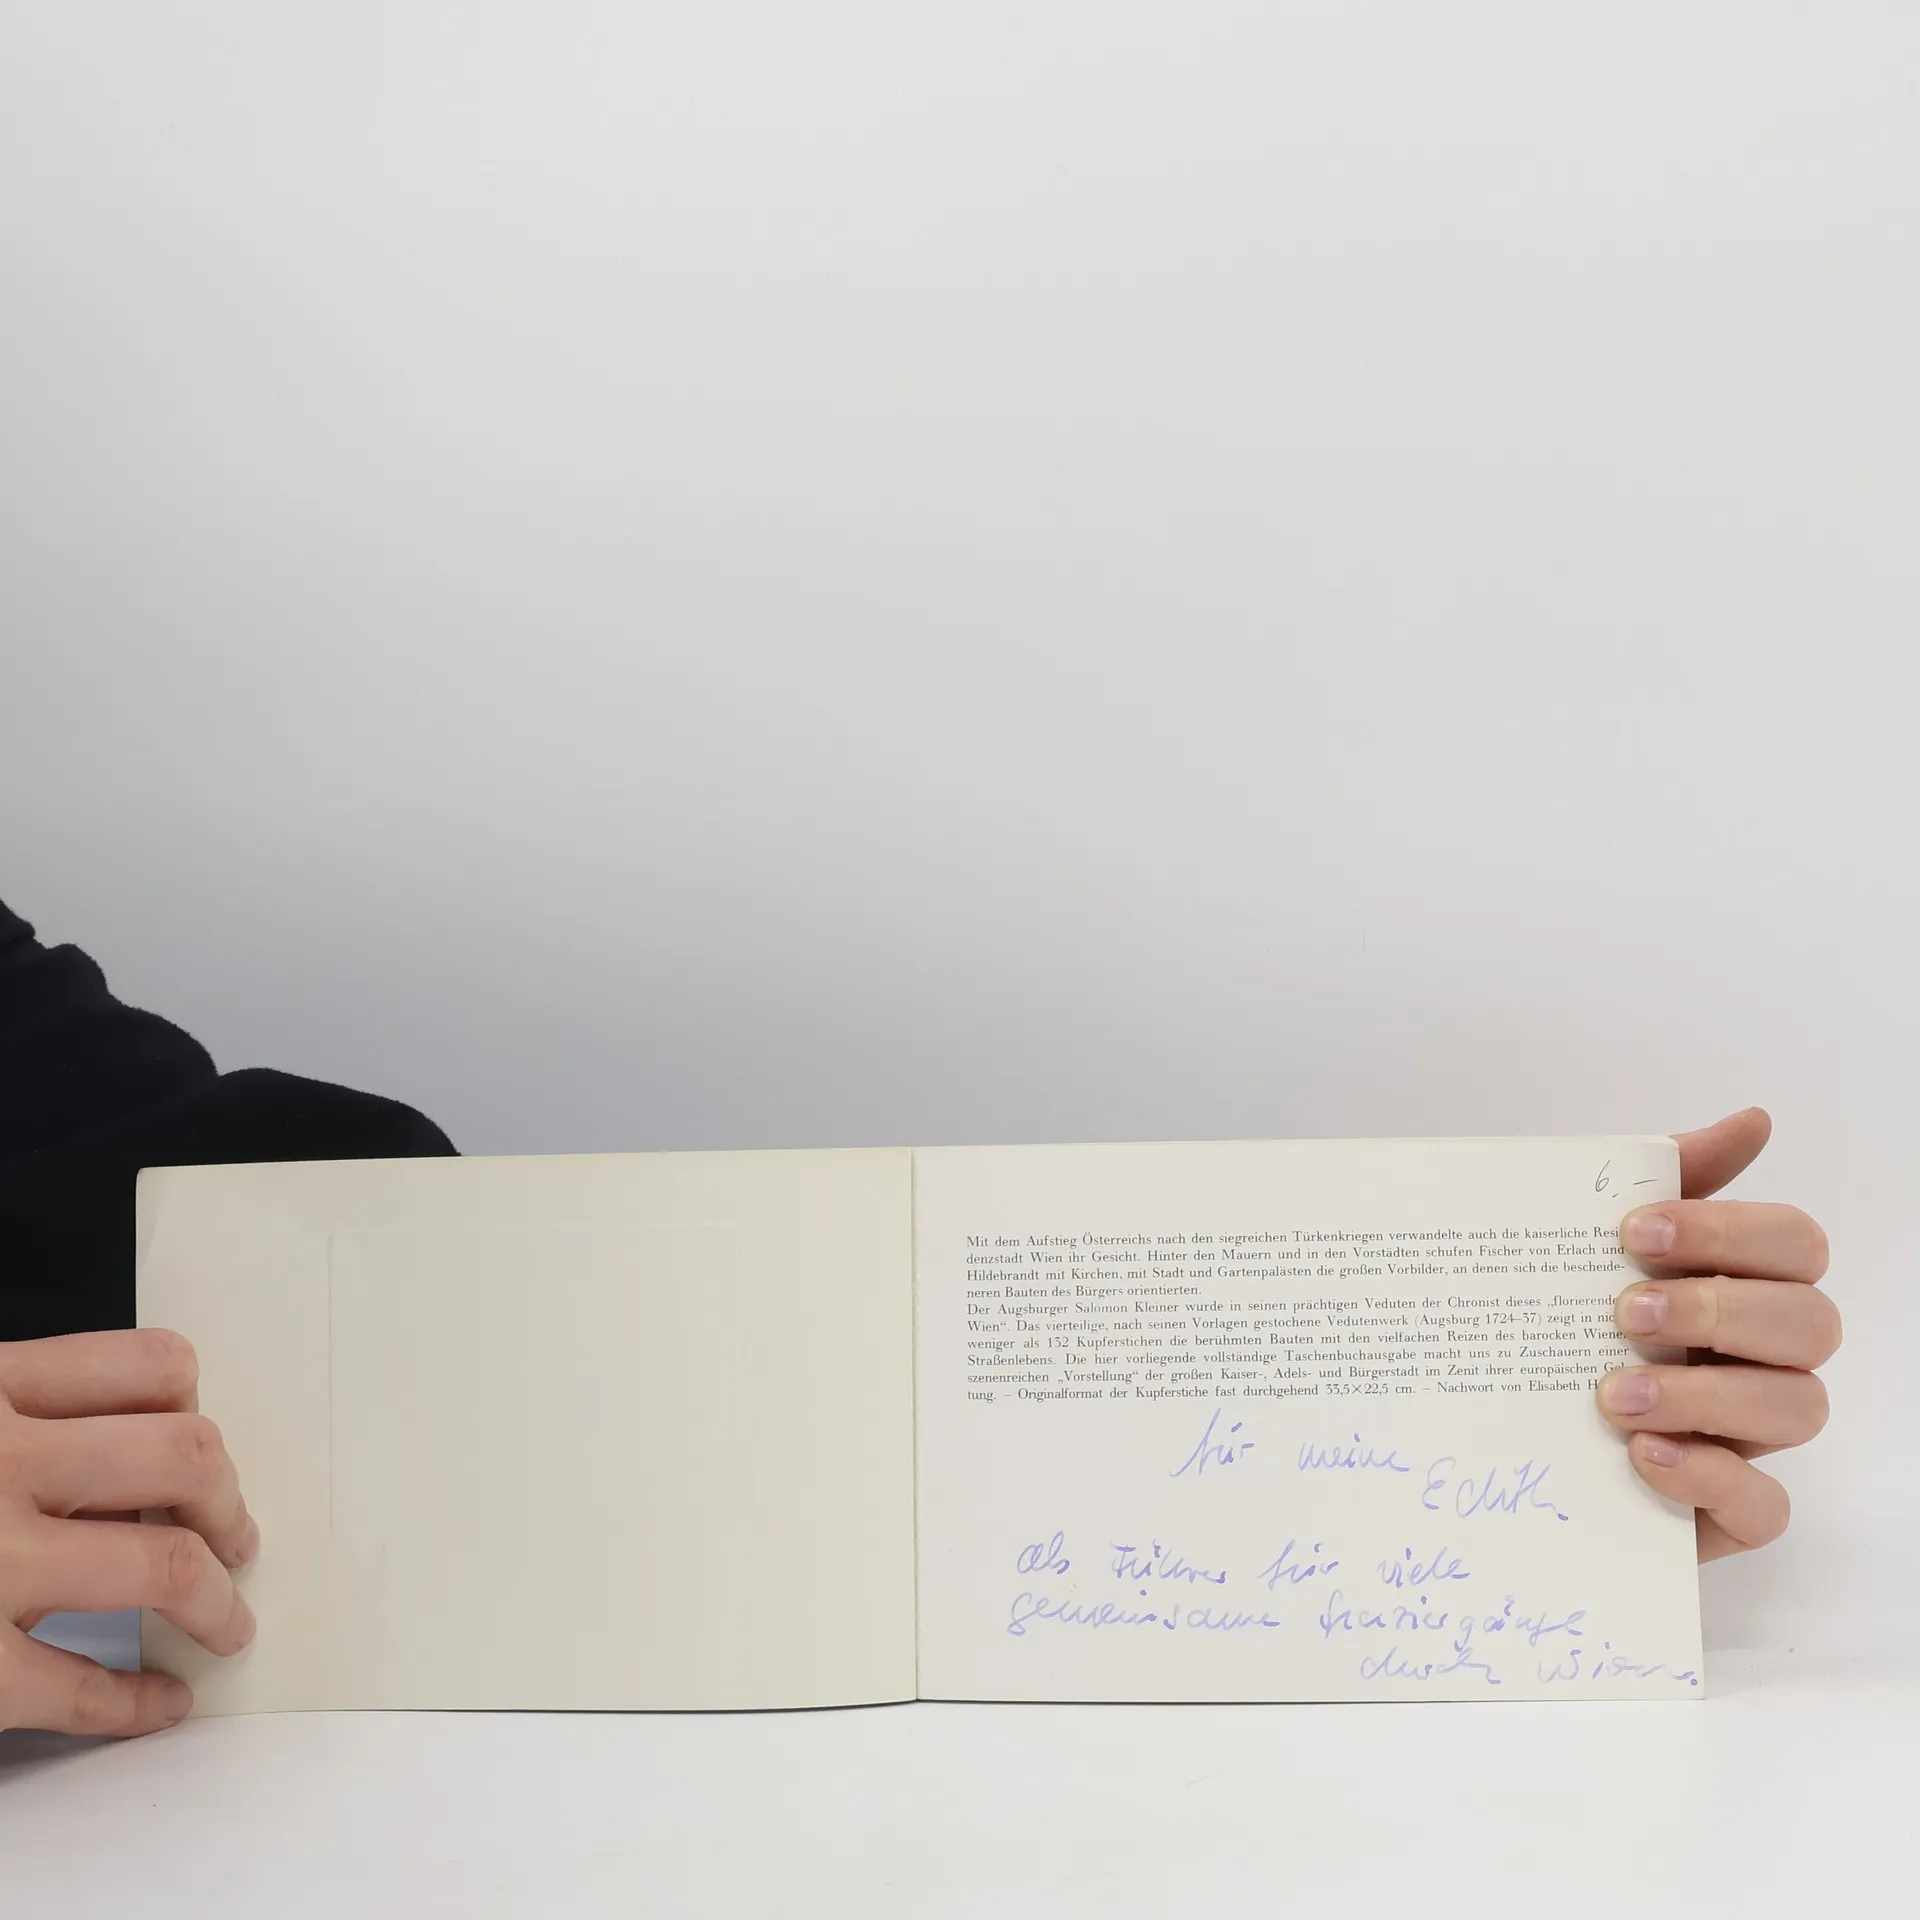 6.–
Mit dem Aufstieg Österreichs nach den siegreichen Türkenkriegen verwandelte auch die kaiserliche Resi
denzstadt Wien ihr Gesicht. Hinter den Mauern und in den Vorstädten schufen Fischer von Erlach und
Hildebrandt mit Kirchen, mit Stadt und Gartenpalästen die großen Vorbilder, an denen sich die bescheide-
neren Bauten des Bürgers orientierten.
Der Augsburger Salomon Kleiner wurde in seinen prächtigen Veduten der Chronist dieses „florierende
Wien“. Das vierteilige, nach seinen Vorlagen gestochene Vedutenwerk (Augsburg 1724–37) zeigt in nic
weniger als 132 Kupferstichen die berühmten Bauten mit den vielfachen Reizen des barocken Wiener
Straßenlebens. Die hier vorliegende vollständige Taschenbuchausgabe macht uns zu Zuschauern einer
szenenreichen „Vorstellung“ der großen Kaiser-, Adels- und Bürgerstadt im Zenit ihrer europäischen Gel-
tung. – Originalformat der Kupferstiche fast durchgehend 33,5×22,5 cm. – Nachwort von Elisabeth H
für meine
Edith.
als Führer für viele
gemeinsame Spaziergänge
durch Wien.